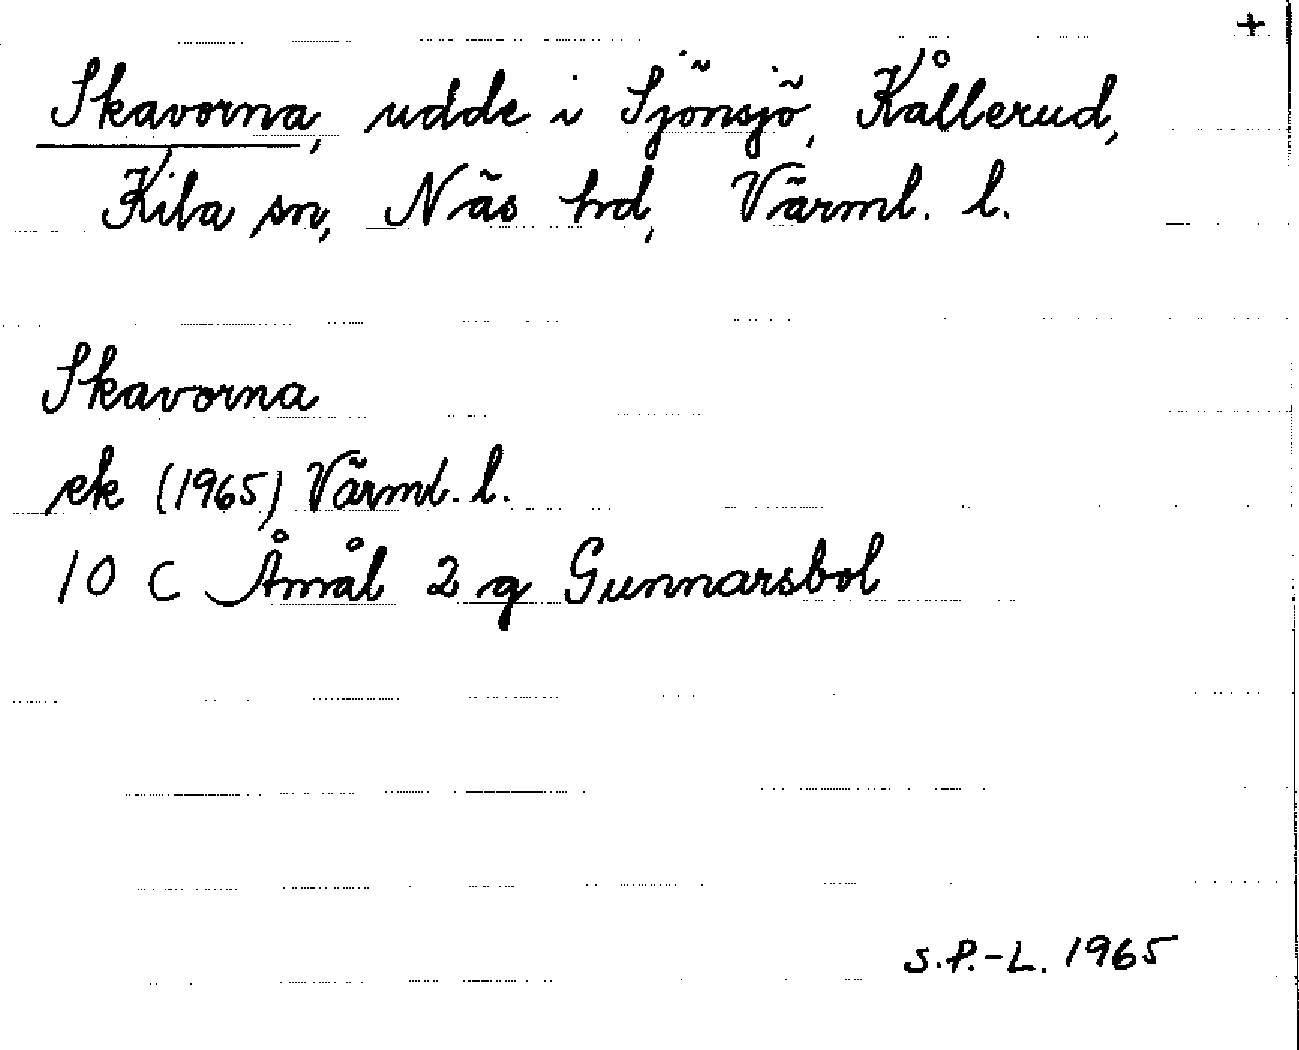 +
Skavorna, udde i Sjönsjö, Kållerud,
Kila sn, Näs hd, Värml. l.
Skavorna
ek (1965) Värml. l.
10 C Åmål 2 g Gunnarsbol
S.P.-L. 1965